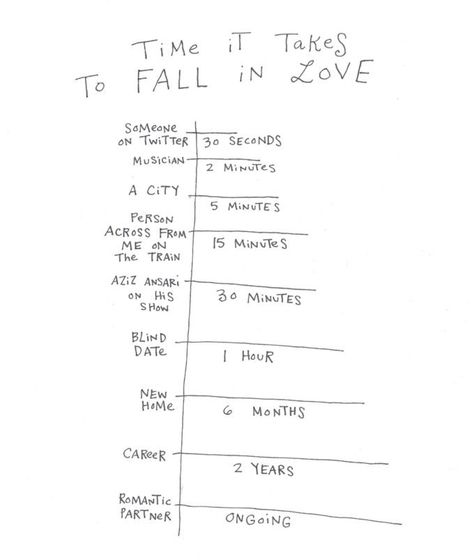 TiME iT TaKeS
To FALL iN LOVE
SoMeoNe
oN TWiTTeR
30 SECONDS
MUSiCiAN
2 MiNUTeS
A CiTY
5 MiNUTES
PeRSoN
ACROSS FRoM
Me oN
The TRAiN
15 MiNUTeS
AZiZ ANSARi
oN HiS
SHoW
30 MiNUTES
BLiND
DATe
1 HoUR
NEW
HoMe
6 MONTHS
CAReeR
2 YEARS
RoMANTiC
PARTNeR
ONGOiNG